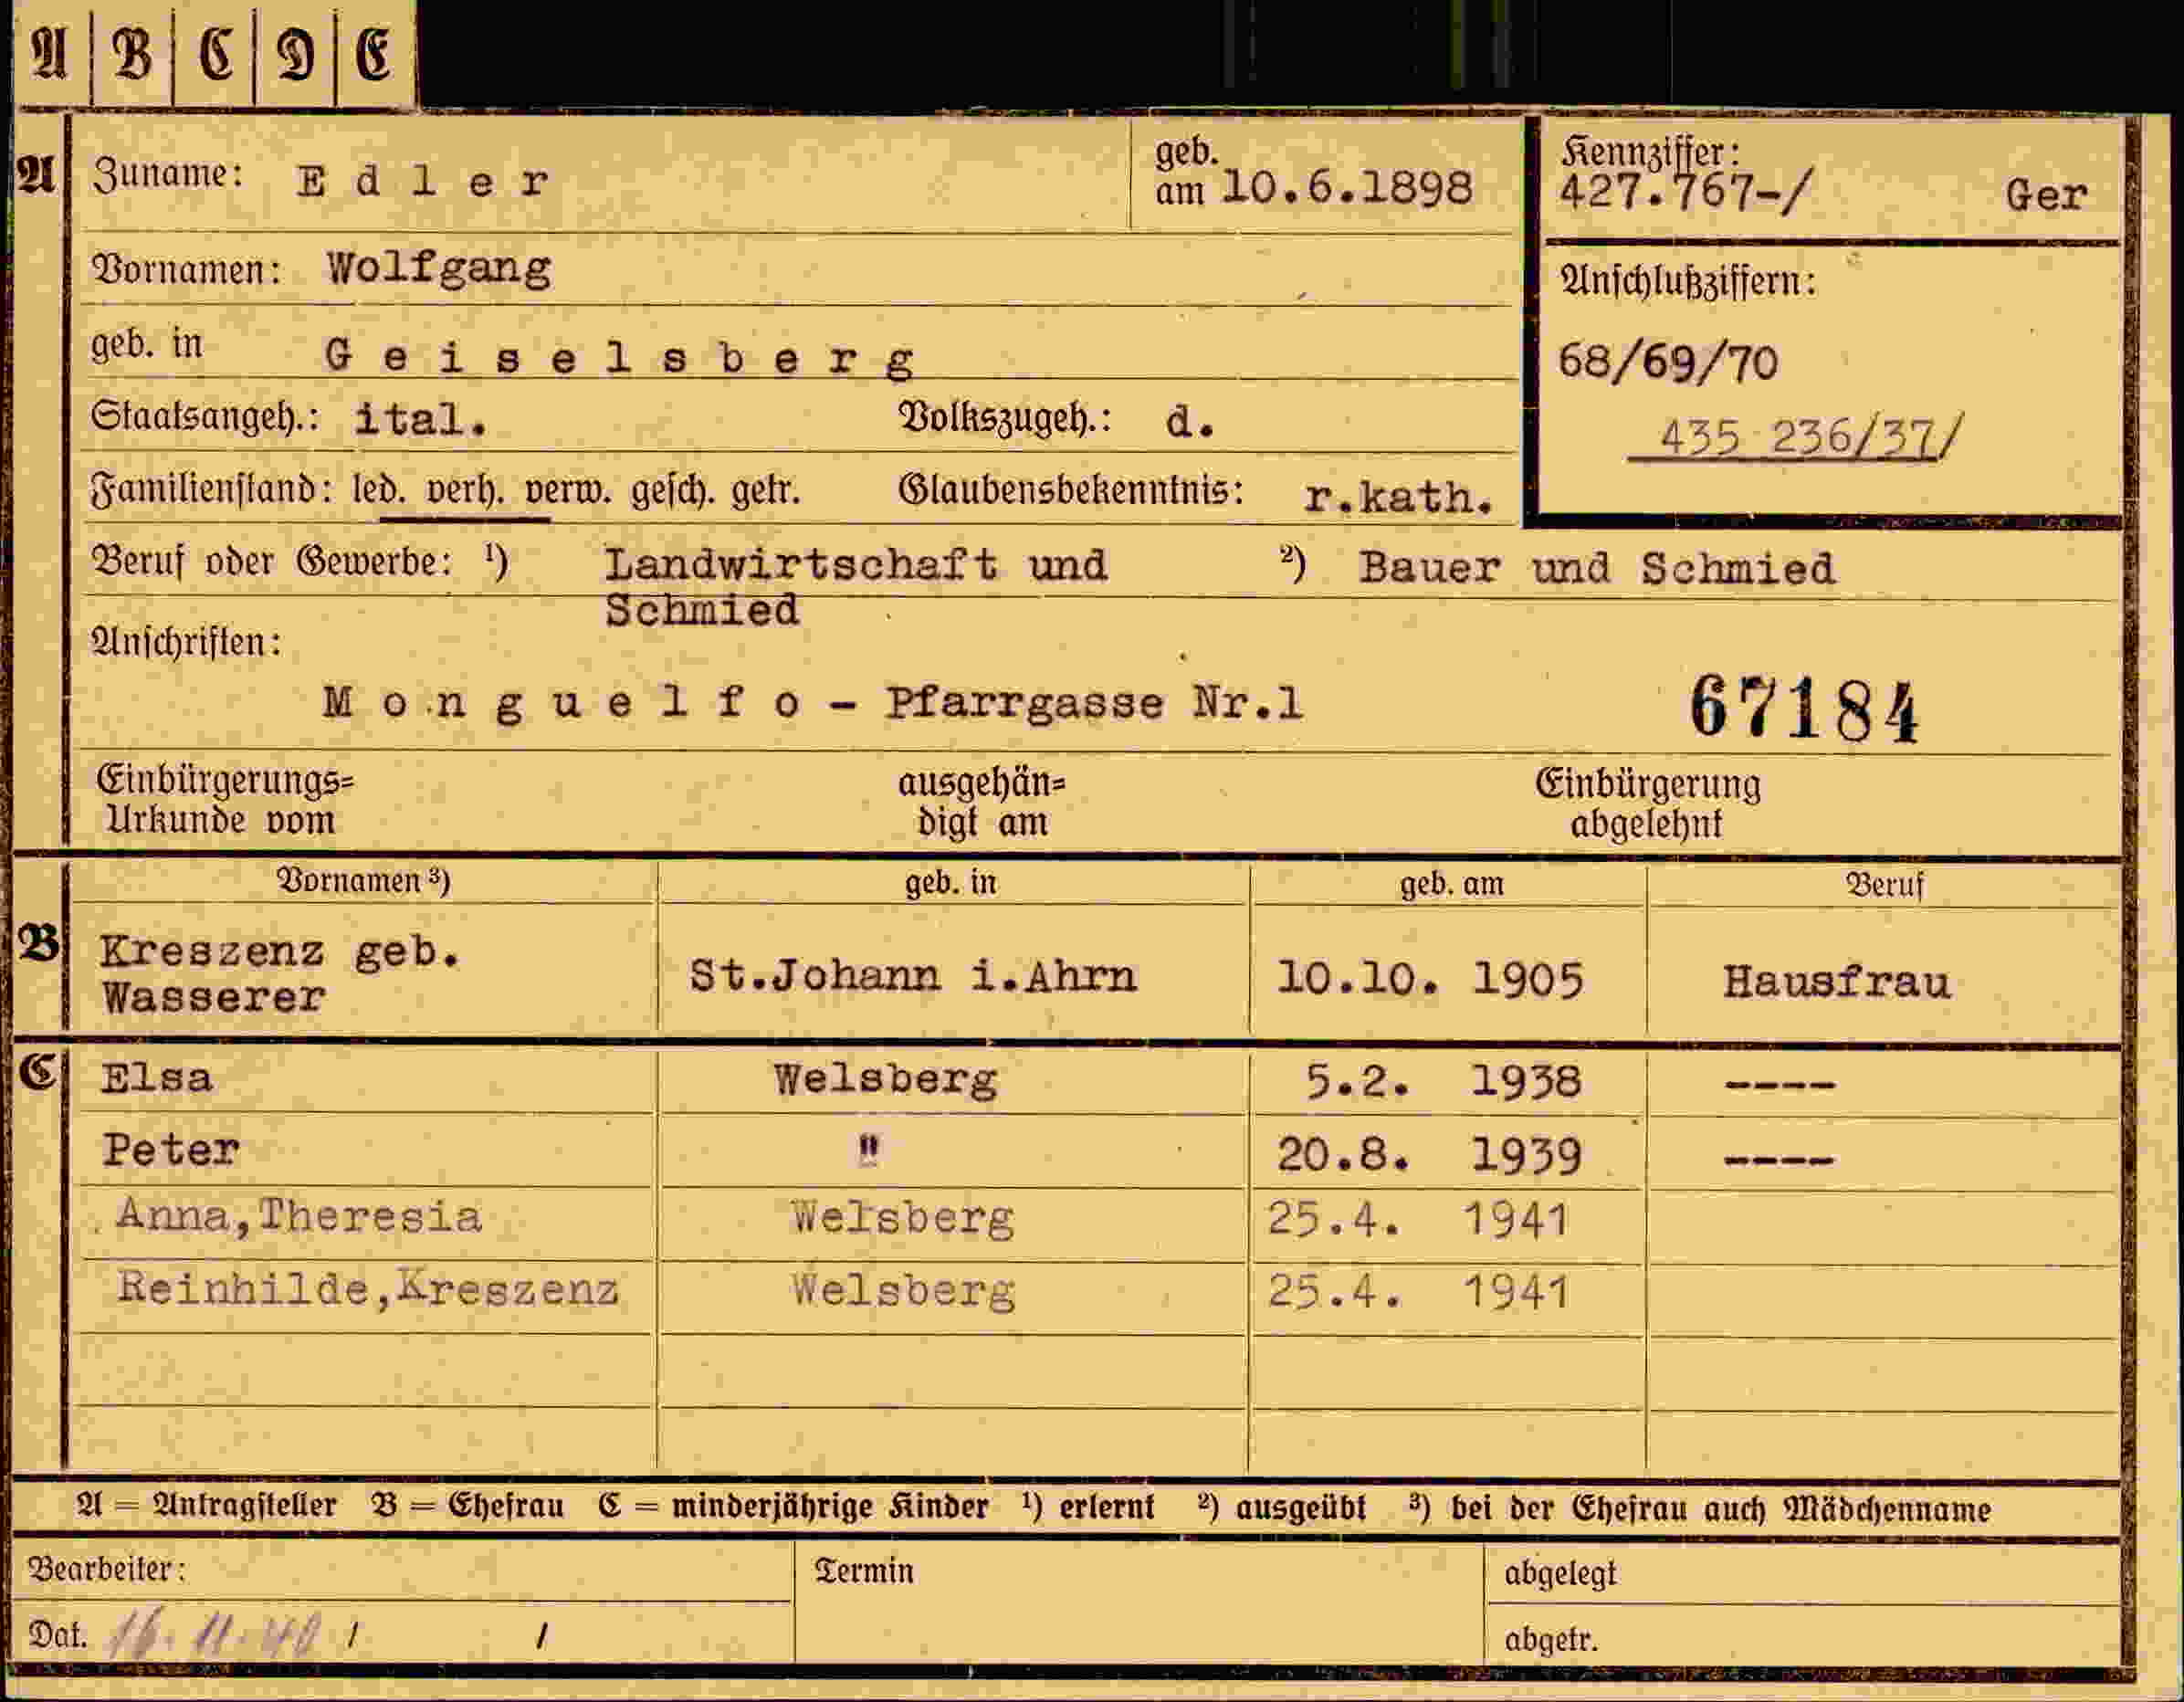 A B C D E
A Zuname: Edler geb. am 10.6.1898 Kennziffer: 427.767-/ Ger
Vornamen: Wolfgang
Anschlußziffern:
geb. in Geiselsberg
68/69/70
Staatsangeh.: ital. Volkszugeh.: d.
435 236/37/
Familienstand: led. verh. verw. gesch. getr. Glaubensbekenntnis: r.kath.
Beruf oder Gewerbe: ¹) Landwirtschaft und ²) Bauer und Schmied
Schmied
Anschriften:
Monguelfo - Pfarrgasse Nr.1 67184
Einbürgerungs= ausgehän= Einbürgerung
Urkunde vom digt am abgelehnt
Vornamen ³) geb. in geb. am Beruf
B Kreszenz geb.
Wasserer St.Johann i.Ahrn 10.10. 1905 Hausfrau
C Elsa Welsberg 5.2. 1938 ----
Peter " 20.8. 1939 ----
Anna,Theresia Welsberg 25.4. 1941
Reinhilde,Kreszenz Welsberg 25.4. 1941
A = Antragsteller B = Ehefrau C = minderjährige Kinder ¹) erlernt ²) ausgeübt ³) bei der Ehefrau auch Mädchenname
Bearbeiter: Termin abgelegt
Dat. 16.11.40 / / abgetr.